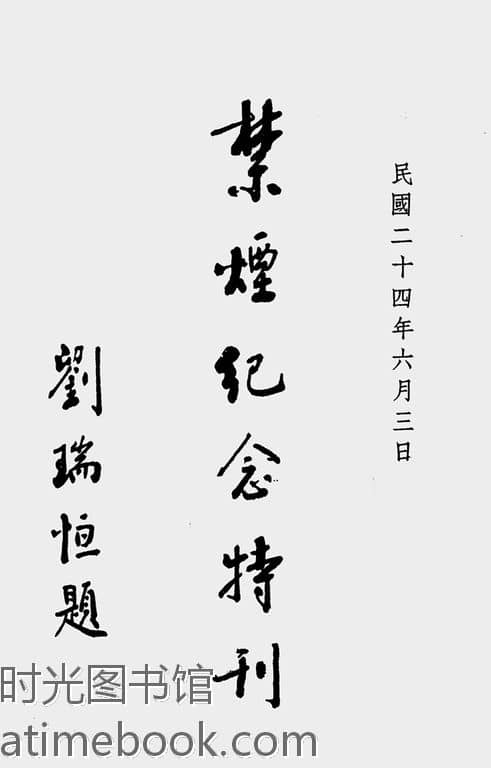 民國二十四年六月三日
禁煙紀念特刊
劉瑞恒題
时光图书馆
atimebook.com